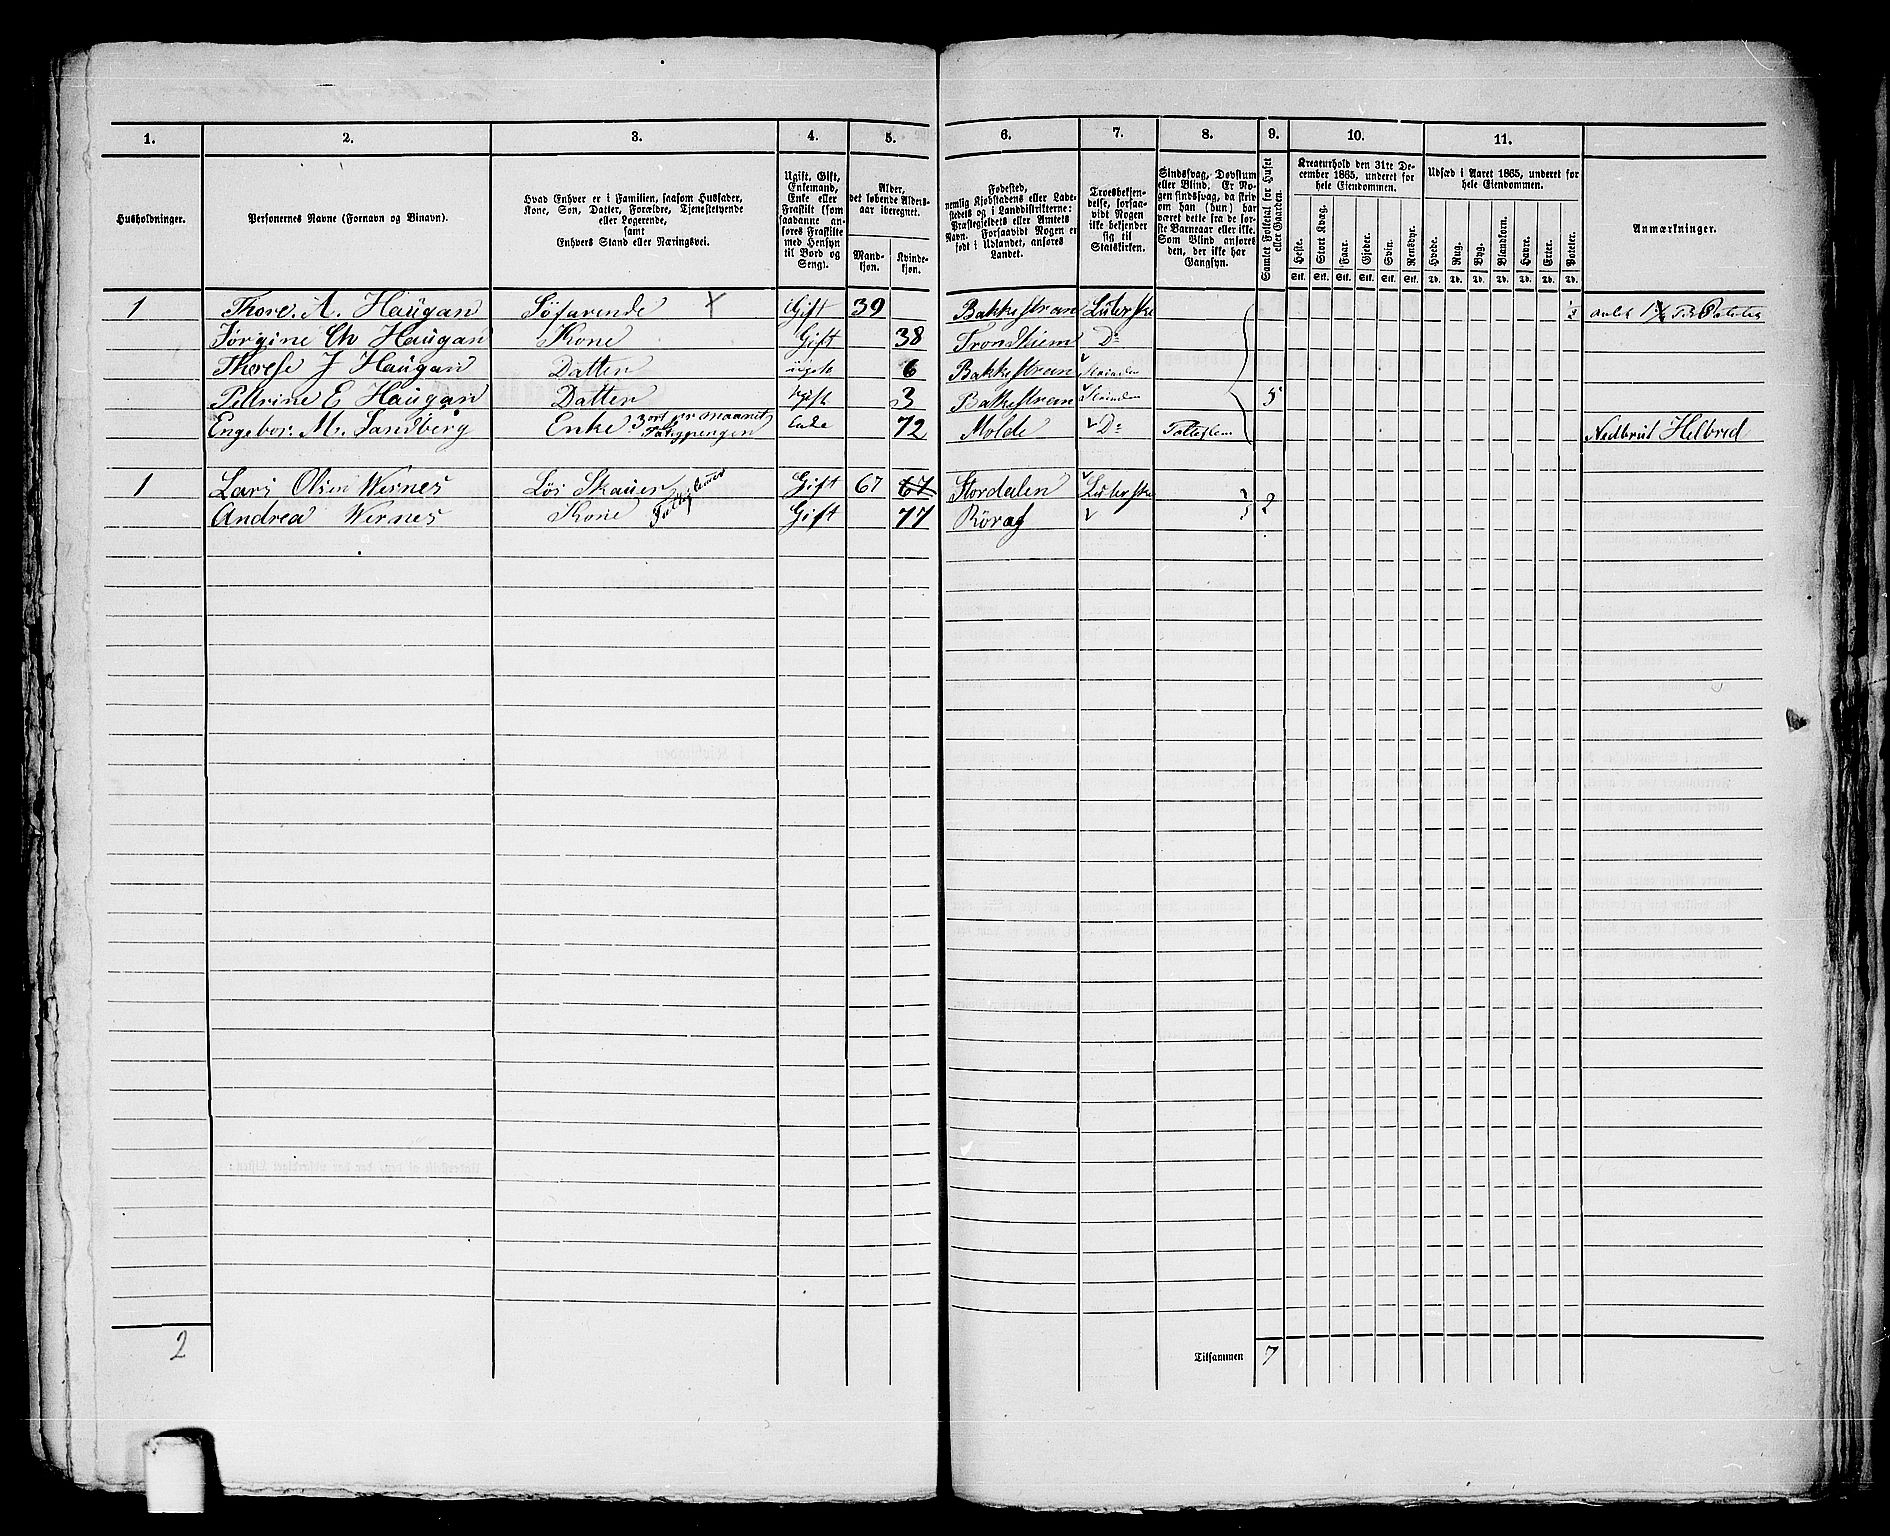 1. 2. 3. 4. 5. 6. 7. 8. 9. 10. 11.
Husholdninger.
Personernes Navne (Fornavn og Binavn).
Hvad Enhver er i Familien, saasom Husfader,
Kone, Søn, Datter, Forældre, Tjenestetyende
eller Logerende,
samt
Enhvers Stand eller Næringsvei.
Ugift, Gift,
Enkemand,
Enke eller
Fraskilt (som
saadanne an-
føres Fraskilte
med Hensyn
til Bord og
Seng).
Alder,
det løbende Alders-
aar iberegnet.
Mand-
kjøn.
Kvinde-
kjøn.
Fødested,
nemlig Kjøbstadens eller Lade-
stedets og i Landdistrikterne:
Præstegjeldets eller Amtets
Navn. Forsaavidt Nogen er
født i Udlandet, anføres
Landet.
Troesbekjen-
delse, forsaa-
vidt Nogen
ikke bekjender
sig til
Statskirken.
Sindssvag, Døvstum
eller Blind. Er No-
gen sindssvag, da skriv
om han (hun) har
været dette fra de før-
ste Barneaar eller ikke.
Som Blind anføres
den, der ikke har
Gangsyn.
Samlet Folketal for Huset
eller Gaarden.
Kreaturhold den 31te De-
cember 1865, underet for
hele Eiendommen.
Heste. Stort Kvæg. Faar. Gjeder. Svin. Rensdyr.
Stk. Stk. Stk. Stk. Stk. Stk.
Udsæd i Aaret 1865, underet for
hele Eiendommen.
Hvede. Rug. Byg. Blandkorn. Havre. Erter. Poteter.
Td. Td. Td. Td. Td. Td. Td.
Anmærkninger.
1 Thore. A. Haugan Søfarende Gift 39 Bakkestran Luterske
Jørgine Ch Haugan Kone Gift 38 Trondhiem Do
Therese J Haugan Datter ugift 6 Bakkestran
Petrine E Haugan Datter Ugift 3 Bakkestran 5
Engebor. M. Sandberg Enke 3 ort pr maanet 72 Molde Do Nedbrut Helbred
1 Lars Olsen Wernes Løs Skauer Gift 67 67 Stordalen Luterske
Andrea Wernes Kone Gift 77 Röraas 2
2
Tilsammen 7